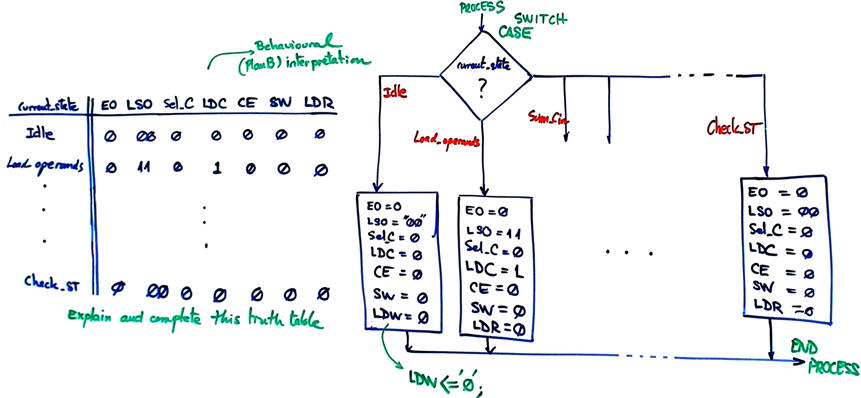 Behavioural
(Plan B) interpretation
current_state EO LSO Sel_C LDC CE SW LDR
Idle 0 00 0 0 0 0 0
Load_operands 0 11 0 1 0 0 0
.
.
.
Check_ST 0 00 0 0 0 0 0
Explain and complete this truth table
PROCESS
SWITCH
CASE
current_state
?
Idle
Load_operands
Sum_Cin
Check_ST
EO = 0
LSO = "00"
Sel_C = 0
LDC = 0
CE = 0
SW = 0
LDW = 0
LDW <= '0';
EO = 0
LSO = 11
Sel_C = 0
LDC = 1
CE = 0
SW = 0
LDR = 0
. . .
EO = 0
LSO = 00
Sel_C = 0
LDC = 0
CE = 0
SW = 0
LDR = 0
END
PROCESS